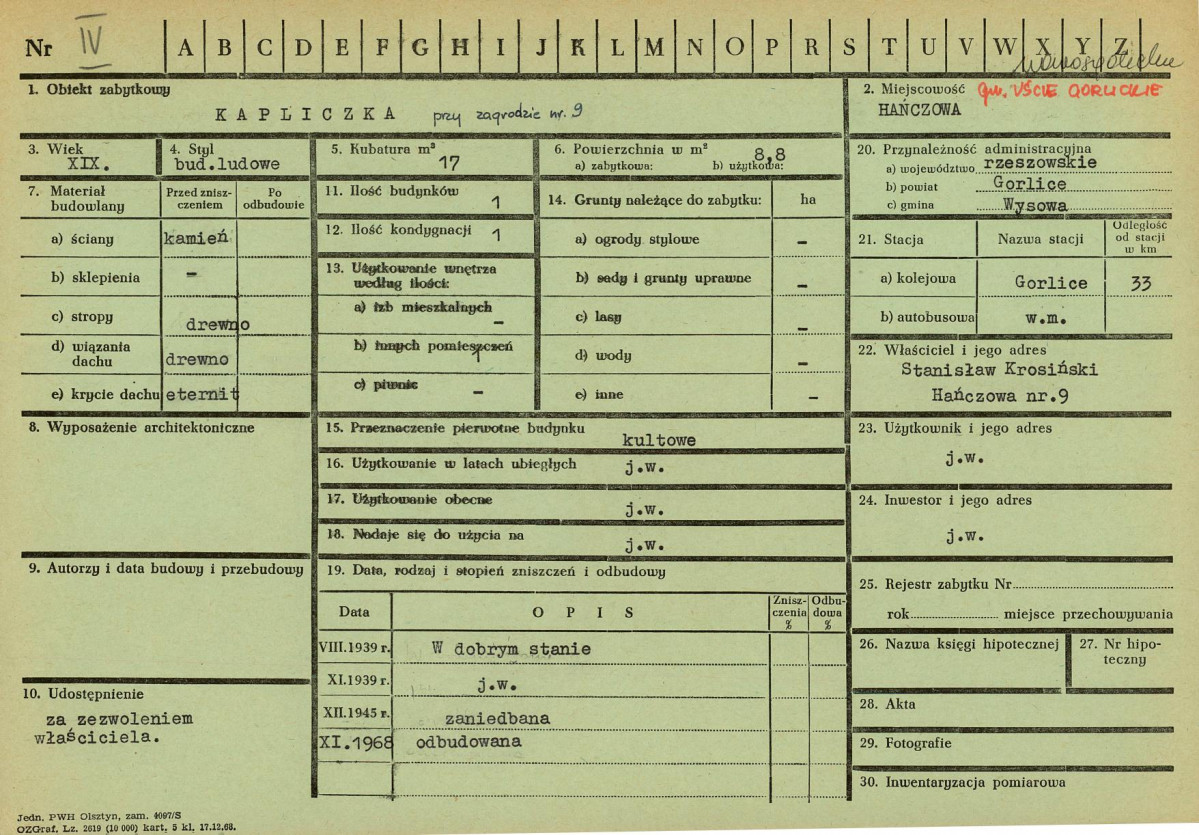 Nr IV A B C D E F G H I J K L M N O P R S T U V W X Y Z
nowosądeckie
1. Obiekt zabytkowy
KAPLICZKA przy zagrodzie nr. 9
2. Miejscowość gm. UŚCIE GORLICKIE
HAŃCZOWA
3. Wiek
XIX.
4. Styl
bud.ludowe
5. Kubatura m³
17
6. Powierzchnia w m²
8,8
a) zabytkowa: b) użytkowa:
7. Materiał budowlany
Przed zniszczeniem
Po odbudowie
a) ściany kamień
b) sklepienia -
c) stropy drewno
d) wiązania dachu drewno
e) krycie dachu eternit
8. Wyposażenie architektoniczne
9. Autorzy i data budowy i przebudowy
10. Udostępnienie
za zezwoleniem
właściciela.
11. Ilość budynków 1
12. Ilość kondygnacji 1
13. Użytkowanie wnętrza
według ilości:
a) izb mieszkalnych -
b) innych pomieszczeń 1
c) piwnic -
14. Grunty należące do zabytku: ha
a) ogrody stylowe -
b) sady i grunty uprawne -
c) lasy -
d) wody -
e) inne -
15. Przeznaczenie pierwotne budynku
kultowe
16. Użytkowanie w latach ubiegłych j.w.
17. Użytkowanie obecne j.w.
18. Nadaje się do użycia na j.w.
19. Data, rodzaj i stopień zniszczeń i odbudowy
Data OPIS Zniszczenia % Odbudowa %
VIII.1939 r. W dobrym stanie
XI.1939 r. j.w.
XII.1945 r. zaniedbana
XI.1968 odbudowana
20. Przynależność administracyjna
a) województwo rzeszowskie
b) powiat Gorlice
c) gmina Wysowa
21. Stacja Nazwa stacji Odległość od stacji w km
a) kolejowa Gorlice 33
b) autobusowa w.m.
22. Właściciel i jego adres
Stanisław Krosiński
Hańczowa nr.9
23. Użytkownik i jego adres
j.w.
24. Inwestor i jego adres
j.w.
25. Rejestr zabytku Nr
rok miejsce przechowywania
26. Nazwa księgi hipotecznej
27. Nr hipoteczny
28. Akta
29. Fotografie
30. Inwentaryzacja pomiarowa
Jedn. PWH Olsztyn, zam. 4097/S
OZGraf. Lz. 2619 (10 000) kart. 5 kl. 17.12.68.